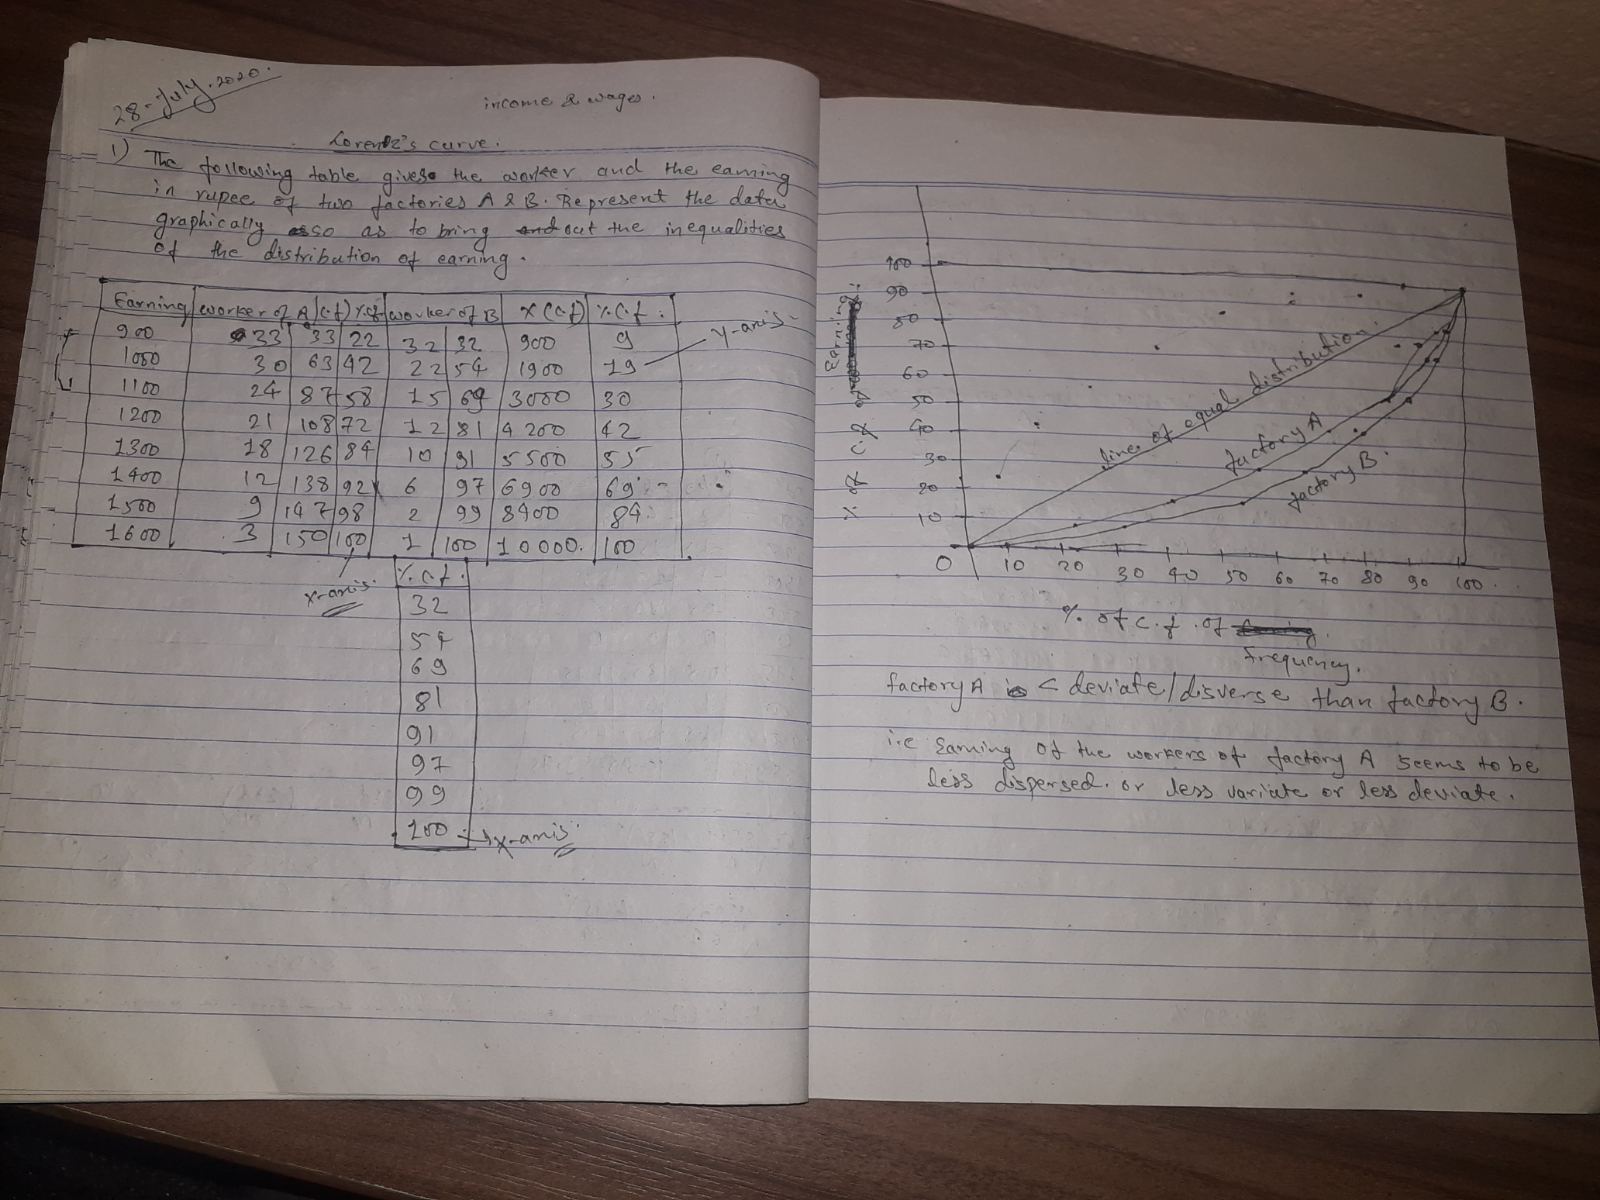 28-July.2020.
income & wages.
Lorentz's curve.
1) The following table gives the worker and the earning
in rupee of two factories A & B. Represent the data
graphically so as to bring out the inequalities
of the distribution of earning.
Earning worker of A (c.f) %cf worker of B X (c.f) % c.f.
900 33 33 22 32 32 900 9
1000 30 63 42 22 54 1900 19 y-axis
1100 24 87 58 15 69 3000 30
1200 21 108 72 12 81 4200 42
1300 18 126 84 10 91 5500 55
1400 12 138 92 6 97 6900 69
1500 9 147 98 2 99 8400 84
1600 3 150 100 1 100 10000. 100
x-axis.
%.c.f.
32
54
69
81
91
97
99
100 x-axis
100
90
80
70
60
50
40
30
20
10
0 10 20 30 40 50 60 70 80 90 100
% of c.f. of
Earning
line of equal distribution.
factory A
factory B.
% of c.f. of
frequency.
factory A is < deviate/disverse than factory B.
i.e Earning of the workers of factory A seems to be
less dispersed. or less variate or less deviate.